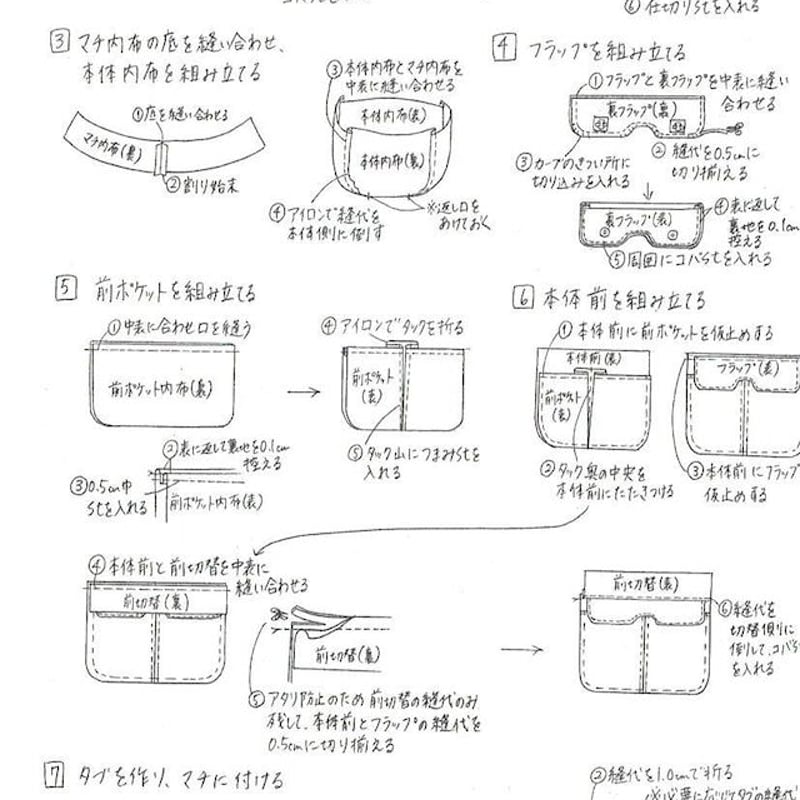 ⑥ 仕切りstを入れる
3 マチ内布の底を縫い合わせ、
本体内布を組み立てる
①底を縫い合わせる
マチ内布(裏)
②割り始末
③本体内布とマチ内布を
中表に縫い合わせる
本体内布(表)
本体内布(裏)
④アイロンで縫代を
本体側に倒す
※返し口を
あけておく
4 フラップを組み立てる
①フラップと裏フラップを中表に縫い
合わせる
裏フラップ(裏)
②縫代を0.5cmに
切り揃える
③カーブのきつい所に
切り込みを入れる
裏フラップ(表)
④表に返して
裏地を0.1cm
控える
⑤周囲にコバstを入れる
5 前ポケットを組み立てる
①中表に合わせ口を縫う
前ポケット内布(裏)
②表に返して裏地を0.1cm
控える
③0.5cm巾
stを入れる
前ポケット内布(表)
④アイロンでタックを折る
前ポケット
(表)
⑤タック山につまみstを
入れる
6 本体前を組み立てる
①本体前に前ポケットを仮止めする
本体前(表)
前ポケット
(表)
②タック奥の中央を
本体前にたたきつける
フラップ(表)
③本体前にフラップ
仮止めする
④本体前と前切替を中表に
縫い合わせる
前切替(裏)
前切替(裏)
⑤アタリ防止のため前切替の縫代のみ
残して、本体前とフラップの縫代を
0.5cmに切り揃える
前切替(表)
⑥縫代を
切替側に
倒して、コバst
を入れる
7 タブを作り、マチに付ける
②縫代を1.0cmで折る